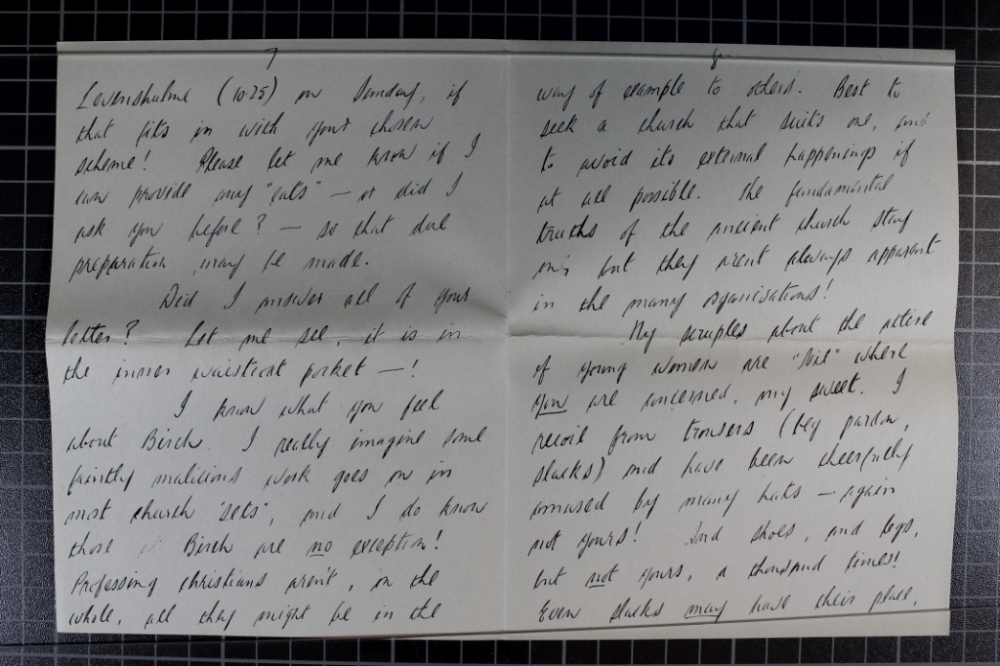 7
Levenshulme (10.25) on Sunday, if
that fits in with your chosen
scheme! Please let me know if I
can provide any "eats" — or did I
ask you before? — so that due
preparation may be made.
Did I answer all of your
letter? Let me see, it is in
the inner waistcoat pocket —!
I know what you feel
about Birch. I really imagine some
faintly malicious work goes on in
most church "sets", and I do know
those at Birch are no exception!
Professing christians aren't, on the
whole, all they might be in the
8
way of example to others. Best to
seek a church that suits one, and
to avoid its external happenings if
at all possible. The fundamental
truths of the ancient church stay
on, but they aren't always apparent
in the many organisations!
My scruples about the attire
of young women are "nil" where
you are concerned, my sweet. I
recoil from trousers (beg pardon,
slacks) and have been cheerfully
amused by many hats — again
not yours! And shoes, and legs,
but not yours, a thousand times!
Even slacks may have their place,